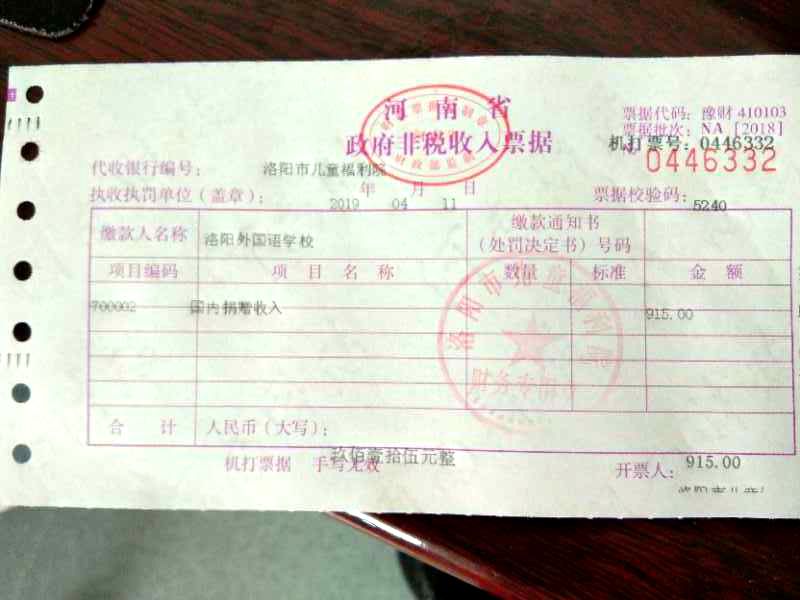 河南省
政府非税收入票据
票据代码：豫财 410103
票据批次：NA [2018]
机打票号：0446332
№ 0446332
代收银行编号： 洛阳市儿童福利院
年 月 日
执收执罚单位（盖章）： 2019 04 11 票据校验码：5240
缴款人名称 洛阳外国语学校 缴款通知书（处罚决定书）号码
项目编码 项目名称 数量 标准 金额
700002 国内捐赠收入 915.00
洛阳市儿童福利院
财务专用章
合计 人民币（大写）：
玖佰壹拾伍元整
机打票据 手写无效 开票人： 915.00